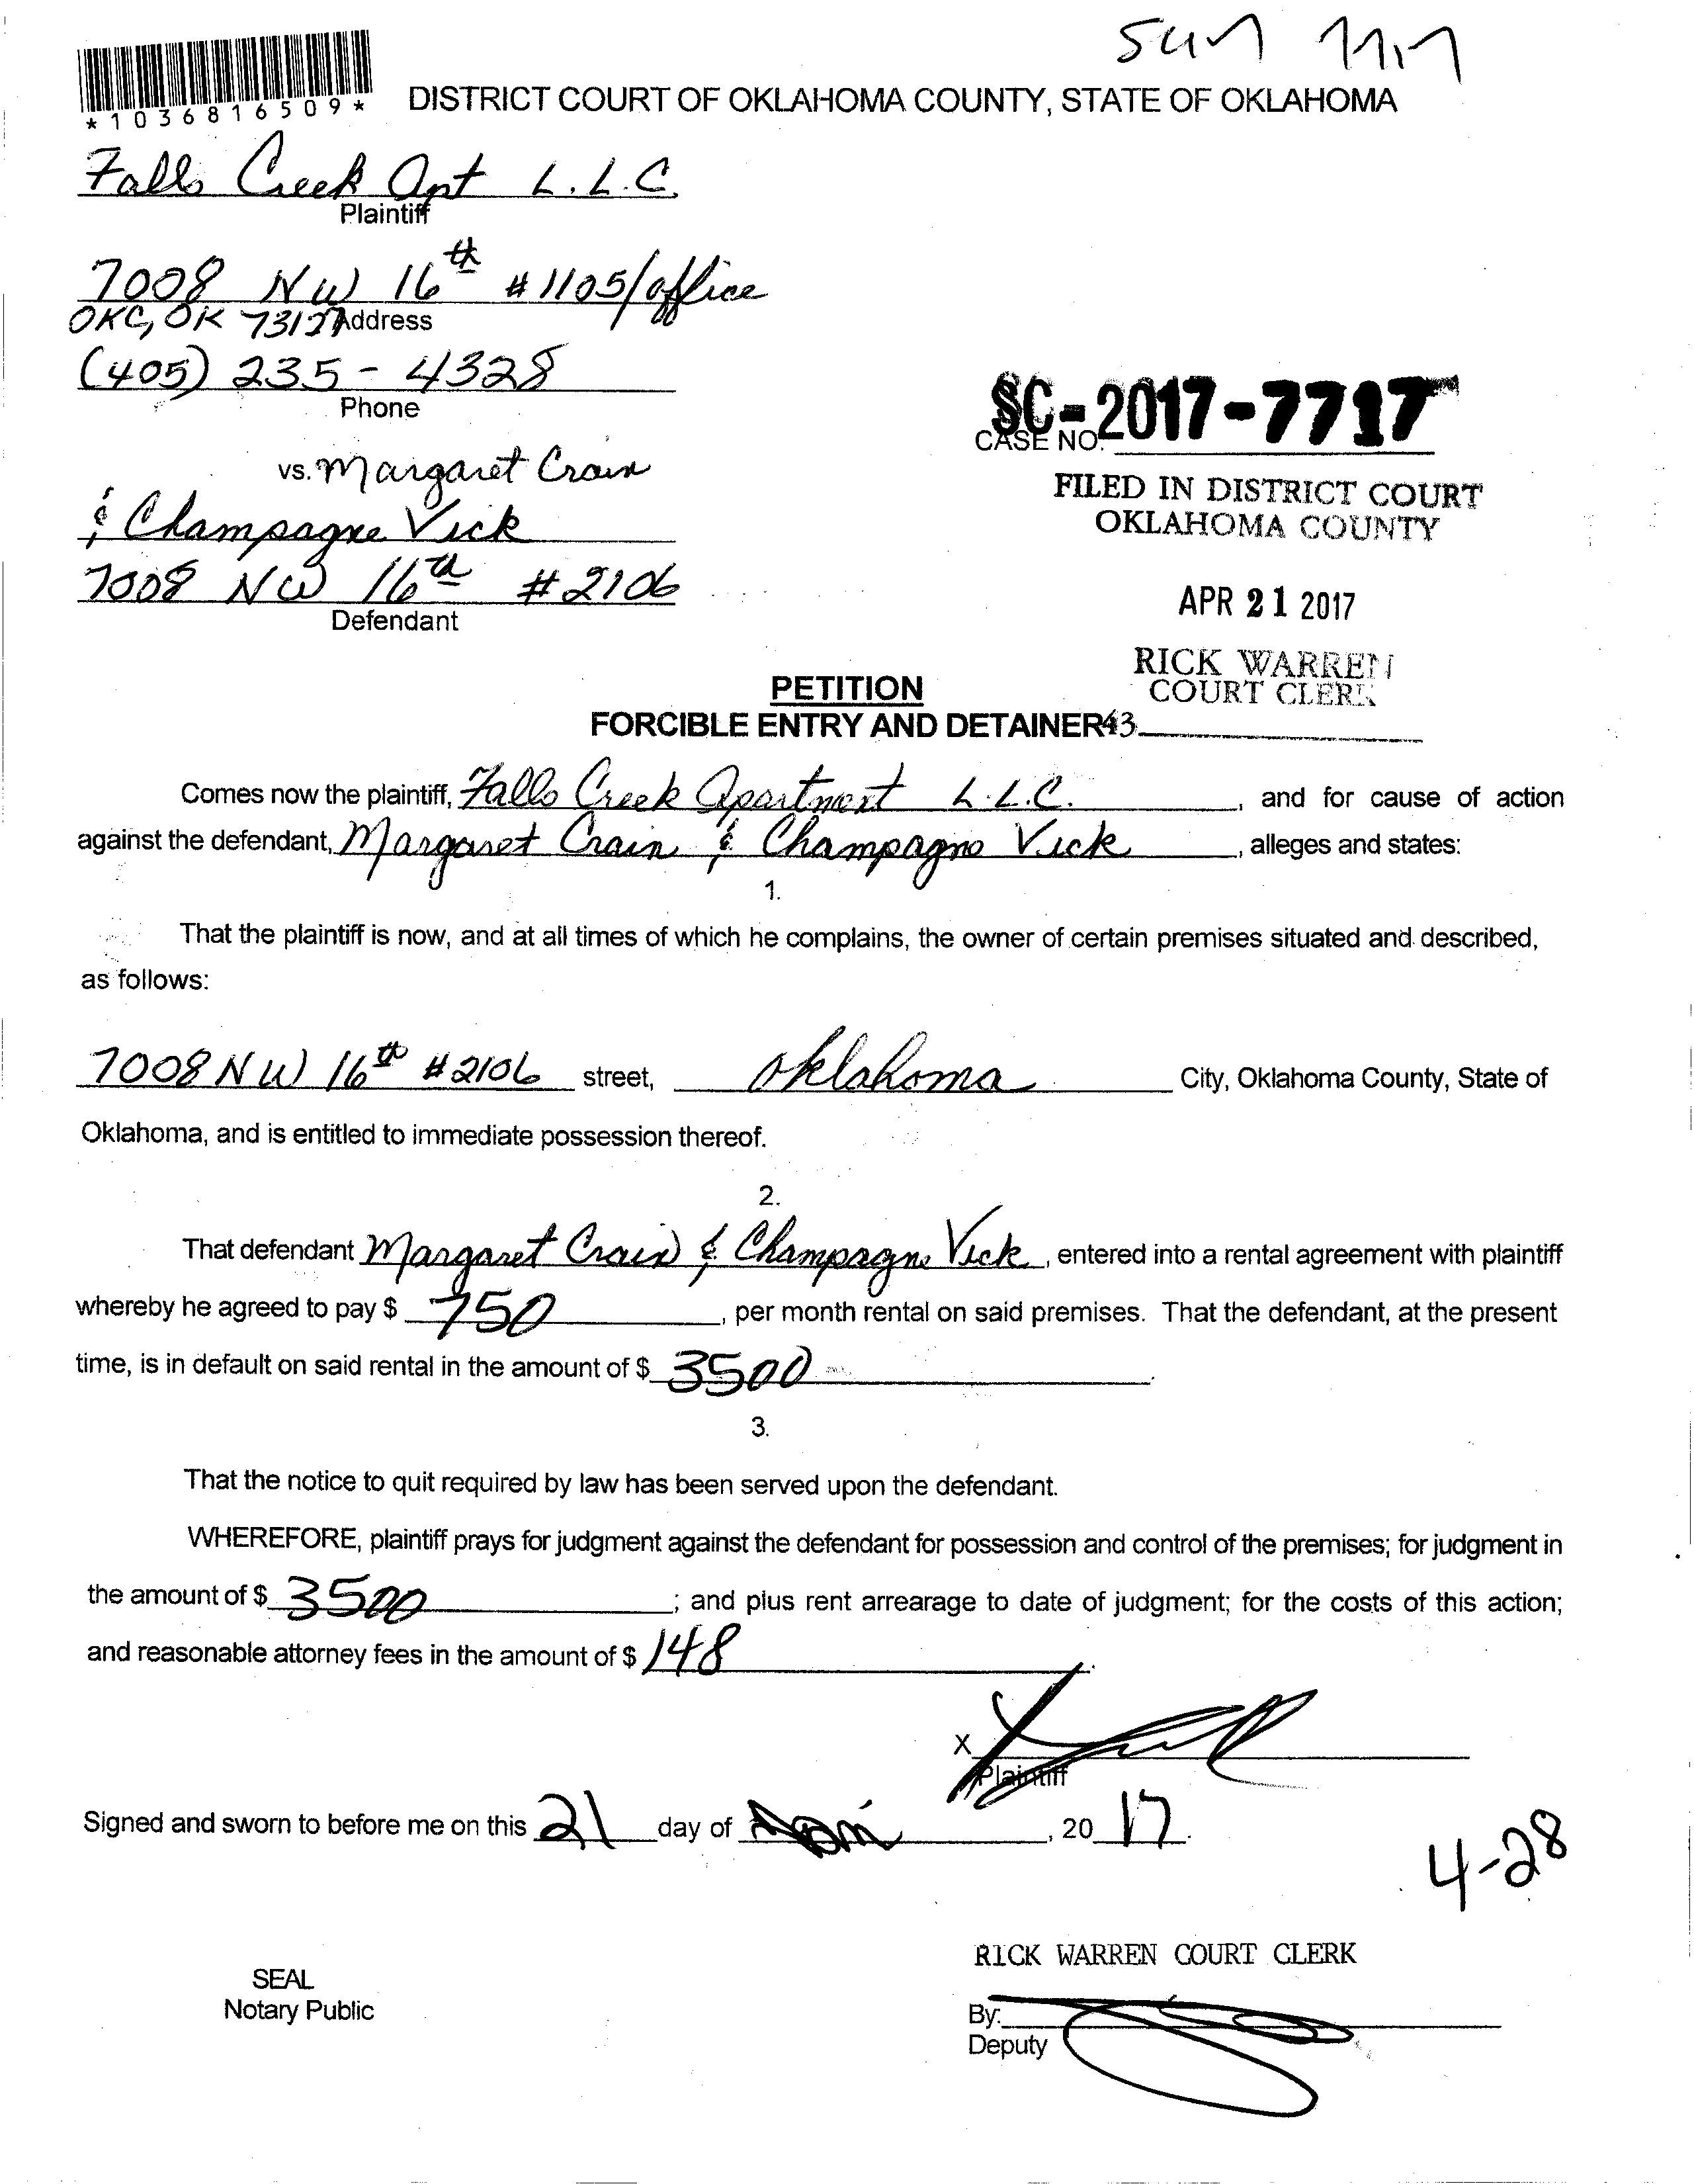 *1036816509*
DISTRICT COURT OF OKLAHOMA COUNTY, STATE OF OKLAHOMA
Falls Creek Apt L.L.C.
Plaintiff
7008 NW 16th #1105/office
OKC, OK 73127
Address
(405) 235-4328
Phone
SC-2017-7717
CASE NO.
vs. Margaret Crain
& Champagne Vick
7008 NW 16th #2106
Defendant
FILED IN DISTRICT COURT
OKLAHOMA COUNTY
APR 21 2017
RICK WARREN
COURT CLERK
43
PETITION
FORCIBLE ENTRY AND DETAINER
Comes now the plaintiff, Falls Creek Apartment L.L.C., and for cause of action
against the defendant, Margaret Crain & Champagne Vick, alleges and states:
1.
That the plaintiff is now, and at all times of which he complains, the owner of certain premises situated and described,
as follows:
7008 NW 16th #2106 street, Oklahoma City, Oklahoma County, State of
Oklahoma, and is entitled to immediate possession thereof.
2.
That defendant Margaret Crain & Champagne Vick, entered into a rental agreement with plaintiff
whereby he agreed to pay $ 750, per month rental on said premises. That the defendant, at the present
time, is in default on said rental in the amount of $ 3500.
3.
That the notice to quit required by law has been served upon the defendant.
WHEREFORE, plaintiff prays for judgment against the defendant for possession and control of the premises; for judgment in
the amount of $ 3500; and plus rent arrearage to date of judgment; for the costs of this action;
and reasonable attorney fees in the amount of $ 148.
X
Plaintiff
Signed and sworn to before me on this 21 day of April, 2017.
4-28
RICK WARREN COURT CLERK
SEAL
Notary Public
By:
Deputy